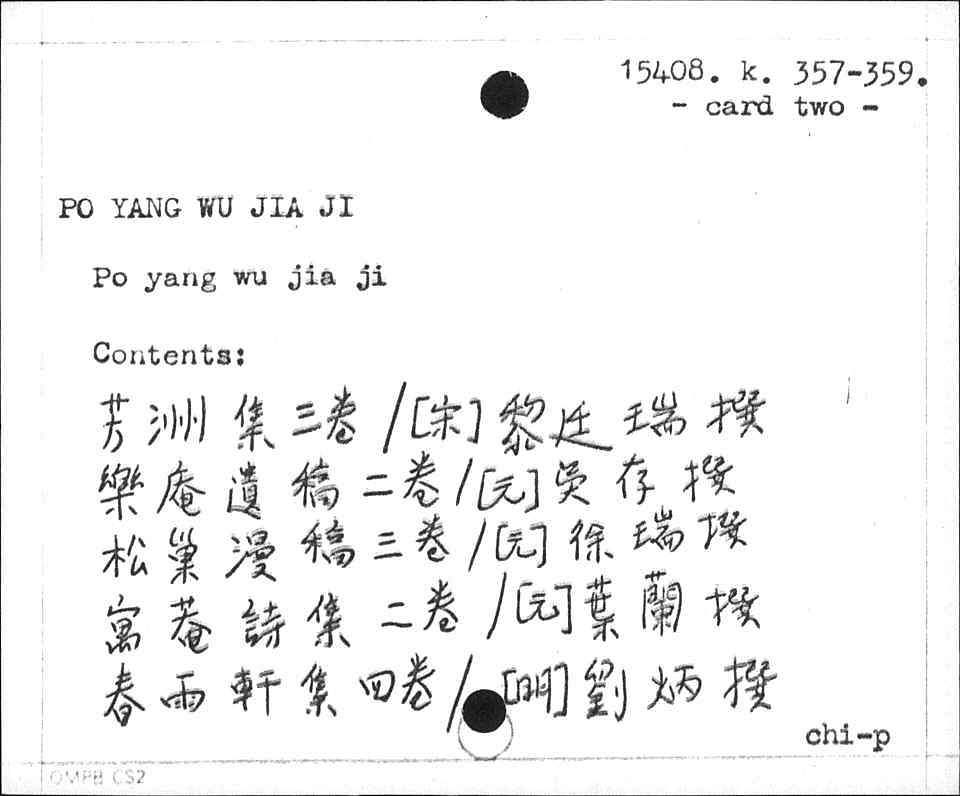 15408. k. 357-359.
- card two -
PO YANG WU JIA JI
Po yang wu jia ji
Contents:
芳洲集三卷/[宋]黎廷瑞撰
樂庵遺稿二卷/[元]吳存撰
松巢漫稿三卷/[元]徐瑞撰
寓菴詩集二卷/[元]葉蘭撰
春雨軒集四卷/[明]劉炳撰
chi-p
OMPB CS2